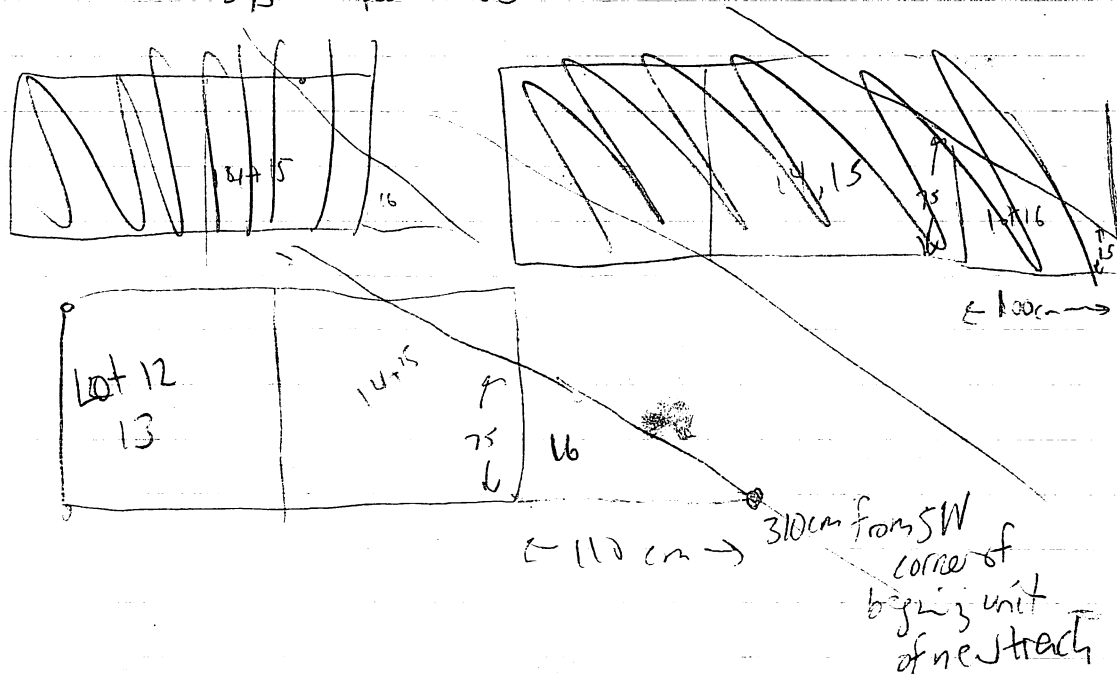 14+15
16
14, 15
75
Lot 16
15
← 100cm →
Lot 12
13
14+15
75
16
← 110 cm →
310cm from SW
corner of
begining unit
of new trench